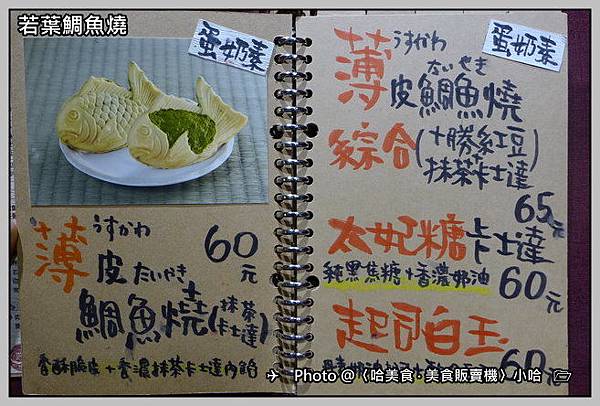 若葉鯛魚燒
蛋奶素
薄皮
うすかわ
60元
鯛魚燒
たいやき
(抹茶卡士達)
香酥脆皮+香濃抹茶卡士達內餡
蛋奶素
薄皮鯛魚燒
うすかわ
たいやき
綜合(十勝紅豆)
抹茶卡士達
65元
太妃糖卡士達
純黑焦糖+香濃奶油 60元
起司白玉
60元
Photo @〈哈美食·美食販賣機〉小哈